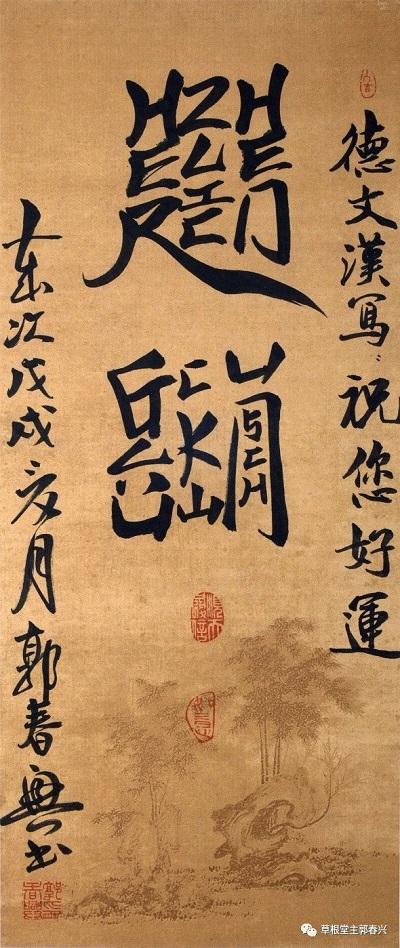 德文漢寫：祝您好運
HERZLICHEN
GLÜCKWUNSCH
歲次戊戌亥月郭春興书
草根堂主郭春兴